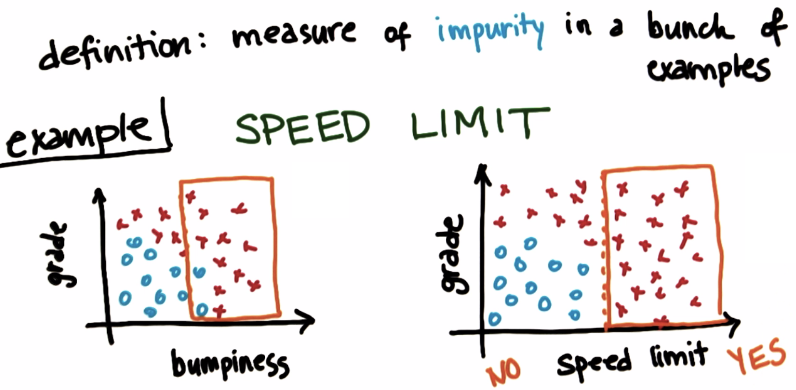 definition: measure of impurity in a bunch of
examples
example
SPEED LIMIT
grade
bumpiness
grade
NO speed limit YES